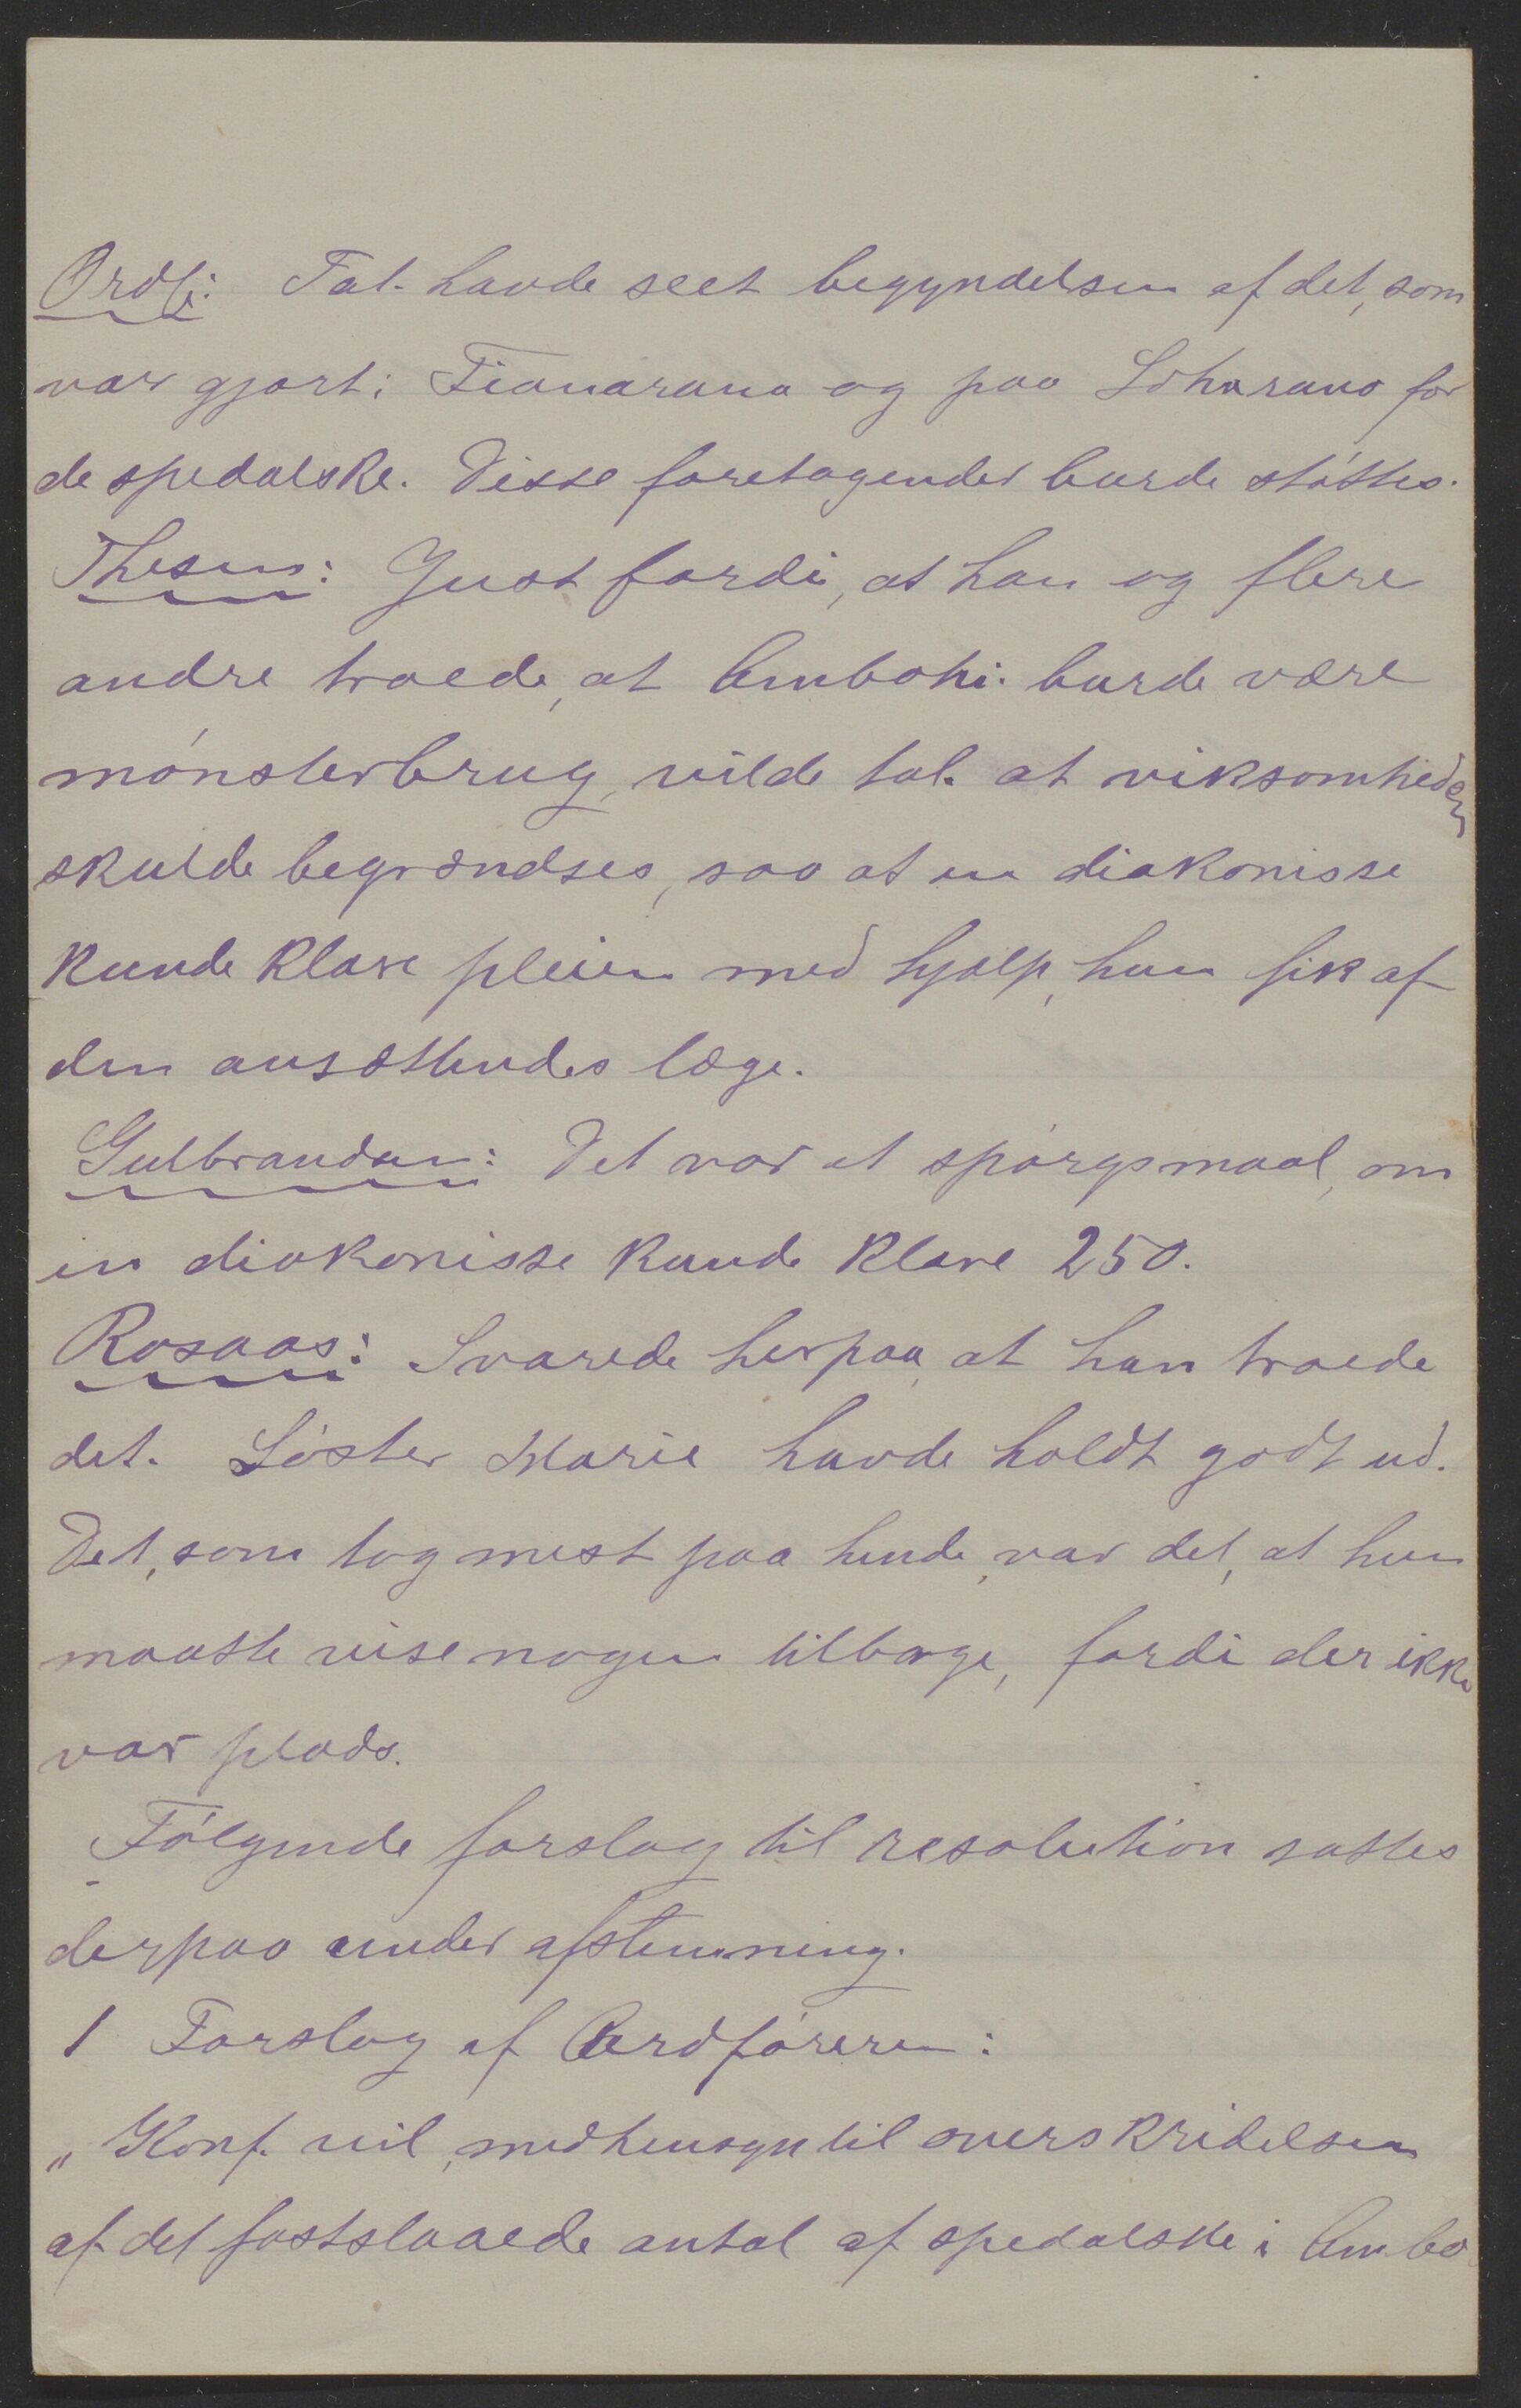 Ordf: Tal. havde seet begyndelsen af det, som
var gjort i Fianarana og paa Loharano for
de spedalske. Disse foretagender burde støttes.
Thesen: Just fordi, at han og flere
andre troede, at Ambohi. burde være
mønsterbrug, vilde tal. at virksomheden
skulde begrændses, saa at en diakonisse
kunde klare pleien med hjælp, hun fik af
den ansættendes læge.
Gulbrandsen: Det var et spørgsmaal, om
en diakonisse kunde klare 250.
Rosaas: Svarede herpaa, at han troede
det. Søster Marie havde holdt godt ud.
Det, som tog mest paa hende, var det, at hun
maatte vise nogen tilbage, fordi der ikke
var plads.
Følgende forslag til resolution sattes
derpaa under afstemning.
1 Forslag af Ordføreren:
„Konf. vil, med hensyn til overskridelsen
af det fastslaaede antal af spedalske i Ambo